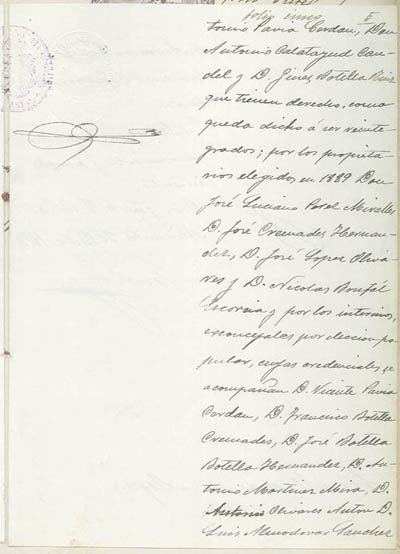 tonio Pavia Cerdan, Don
Antonio Calatayud Can-
del y D. Ginez Botella Ruiz
que tienen derecho, como
queda dicho á ser reinte-
grados; por los propieta-
rios elegidos en 1889 Don
José Luciano Perez Miralles
D. José Cremades Hernan-
dez, D. José Lopez Oliva-
res y D. Nicolas Bonfil
Escorcia y por los interinos,
exconcejales por eleccion po-
pular, cuyas credenciales se
acompañan D. Vicente Pavia
Cerdan, D. Francisco Botella
Cremades, D. José Botella
Botella Hernandez, D. An-
tonio Martinez Mira, D.
Antonio Olivares Anton D.
Luis Almodovar Sanchez